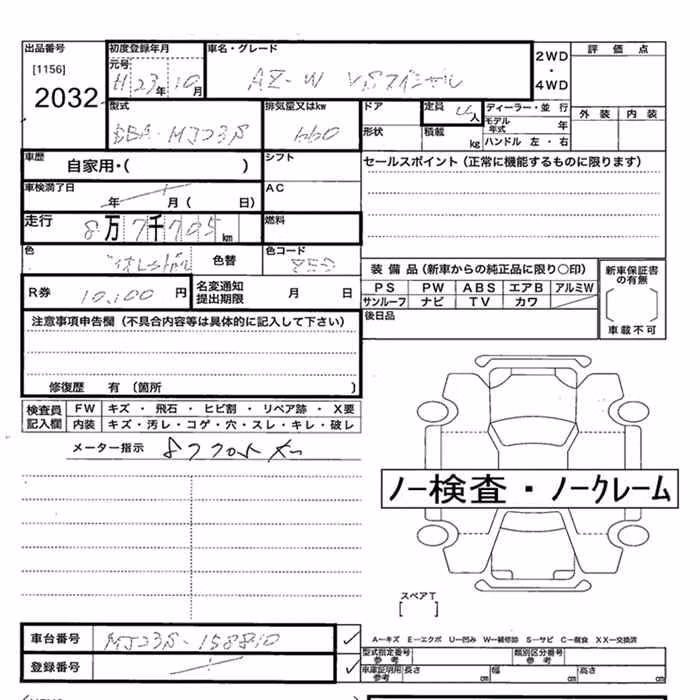 出品番号 初度登録年月 車名・グレード 2WD・4WD 評価点
[1156] 元号 H23年10月 AZ-W VSスペシャル
2032 外装 内装
型式 排気量又はkw ドア 定員 4人 ディーラー・並 行
DBA-MJ23S 660 形状 積載 kg モデル年式 年
ハンドル 左・右
車歴 自家用・( ) シフト セールスポイント(正常に機能するものに限ります)
車検満了日 年 月( 日) AC
走行 8万7千705km 燃料
色 色替 色コード
装備品(新車からの純正品に限り○印) 新車保証書の有無
PS PW ABS エアB アルミW
R券 10,100円 名変通知提出期限 月 日 サンルーフ ナビ TV カワ
後日品 車載不可
注意事項申告欄(不具合内容等は具体的に記入して下さい)
修復歴 有(箇所 )
検査員記入欄 FW キズ・飛石・ヒビ割・リペア跡・X要
内装 キズ・汚レ・コゲ・穴・スレ・キレ・破レ
メーター指示
ノー検査・ノークレーム
スペアT
[ ]
車台番号 MJ23S-158810 A―キズ E―エクボ U―凹み W―補修跡 S―サビ C―腐食 XX―交換済
型式指定番号 参考 類別区分番号 参考
登録番号 車庫証明用参考 長さ cm 幅 cm 高さ cm